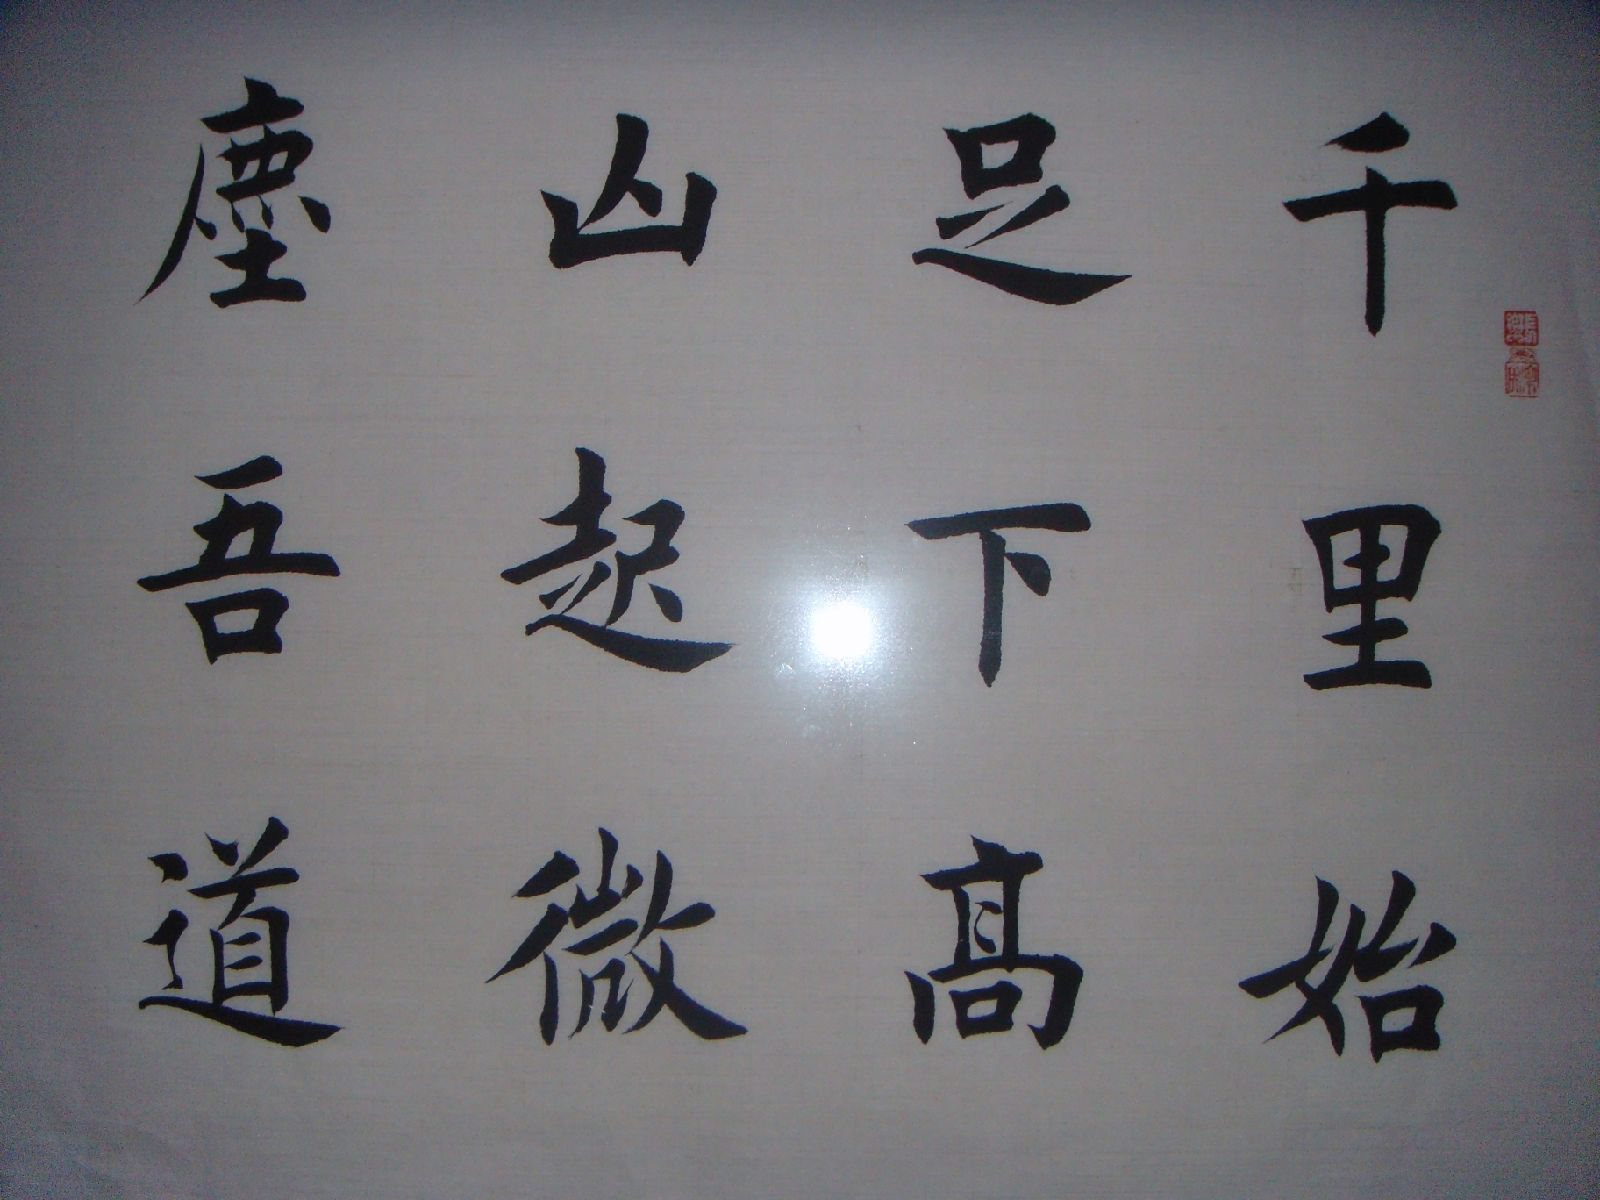 千里始
足下高
山起微
塵吾道